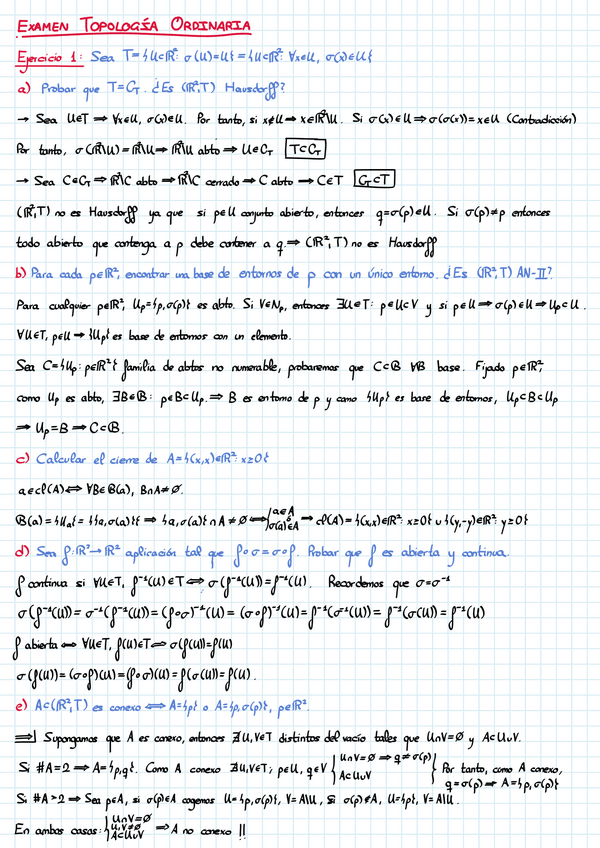 EXAMEN TOPOLOGÍA ORDINARIA
Ejercicio 1: Sea T={U⊂ℝ²: σ(U)=U}={U⊂ℝ²: ∀x∈U, σ(x)∈U}
a) Probar que T=C_T. ¿Es (ℝ²,T) Hausdorff?
→ Sea U∈T ⇒ ∀x∈U, σ(x)∈U. Por tanto, si x∉U ⇒ x∈ℝ²\U. Si σ(x)∈U ⇒ σ(σ(x))=x∈U (Contradicción)
Por tanto, σ(ℝ²\U)=ℝ²\U ⇒ ℝ²\U abto ⇒ U∈C_T T⊂C_T
→ Sea C∈C_T ⇒ ℝ²\C abto ⇒ ℝ²\C cerrado ⇒ C abto ⇒ C∈T C_T⊂T
(ℝ²,T) no es Hausdorff ya que si p∈U conjunto abierto, entonces q=σ(p)∈U. Si σ(p)≠p entonces
todo abierto que contenga a p debe contener a q ⇒ (ℝ²,T) no es Hausdorff
b) Para cada p∈ℝ², encontrar una base de entornos de p con un único entorno. ¿Es (ℝ²,T) AN-II?
Para cualquier p∈ℝ², U_p={p,σ(p)} es abto. Si V∈N_p, entonces ∃U∈T: p∈U⊂V y si p∈U ⇒ σ(p)∈U ⇒ U_p⊂U.
∀U∈T, p∈U ⇒ {U_p} es base de entornos con un elemento.
Sea C={U_p: p∈ℝ²} familia de abtos no numerable, probaremos que C⊂B ∀B base. Fijado p∈ℝ²,
como U_p es abto, ∃B∈B: p∈B⊂U_p. ⇒ B es entorno de p y como {U_p} es base de entornos, U_p⊂B⊂U_p
⇒ U_p=B ⇒ C⊂B.
c) Calcular el cierre de A={(x,x)∈ℝ²: x≥0}
a∈cl(A) ⇔ ∀B∈B(a), B∩A≠∅.
B(a)={U_a}={{a,σ(a)}} ⇒ {a,σ(a)}∩A≠∅ ⇔ {a∈A ó σ(a)∈A ⇒ cl(A)={(x,x)∈ℝ²: x≥0}∪{(y,-y)∈ℝ²: y≥0}
d) Sea f:ℝ²→ℝ² aplicación tal que f∘σ=σ∘f. Probar que f es abierta y continua.
f continua si ∀U∈T, f⁻¹(U)∈T ⇔ σ(f⁻¹(U))=f⁻¹(U). Recordemos que σ=σ⁻¹
σ(f⁻¹(U))=σ⁻¹(f⁻¹(U))=(f∘σ)⁻¹(U)=(σ∘f)⁻¹(U)=f⁻¹(σ⁻¹(U))=f⁻¹(σ(U))=f⁻¹(U)
f abierta ⇔ ∀U∈T, f(U)∈T ⇔ σ(f(U))=f(U)
σ(f(U))=(σ∘f)(U)=(f∘σ)(U)=f(σ(U))=f(U).
e) A⊂(ℝ²,T) es conexo ⇔ A={p} o A={p,σ(p)}, p∈ℝ².
⇒| Supongamos que A es conexo, entonces ∄U,V∈T distintos del vacío tales que U∩V=∅ y A⊂U∪V.
Si #A=2 ⇒ A={p,q}. Como A conexo ∄U,V∈T; p∈U, q∈V {U∩V=∅ ⇒ q≠σ(p) A⊂U∪V} Por tanto, como A conexo, q=σ(p) ⇒ A={p,σ(p)}
Si #A>2 ⇒ Sea p∈A, si σ(p)∈A cogemos U={p,σ(p)}, V=A\U, si σ(p)∉A, U={p}, V=A\U.
En ambos casos: {U∩V=∅ U,V≠∅ A⊂U∪V ⇒ A no conexo !!